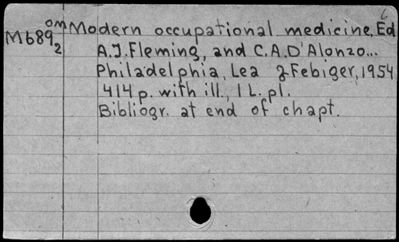 6
OM Modern occupational medicine, Ed
M689
2
A.J. Fleming, and C.A.D'Alonzo...
Philadelphia, Lea & Febiger, 1954
414 p. with ill., 1 L. pl.
Bibliogr. at end of chapt.